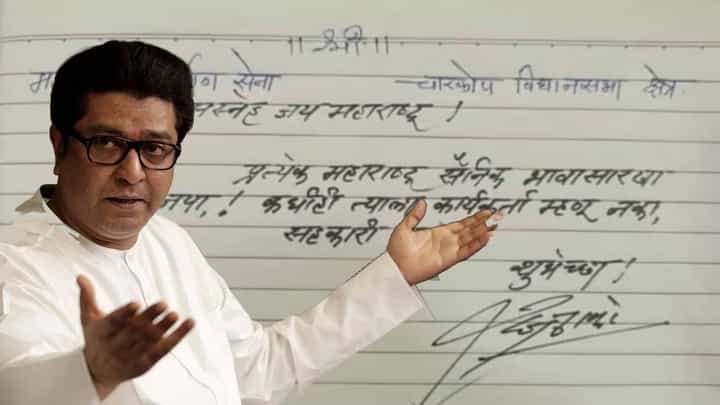 || श्री ||
सेना चारकोप विधानसभा क्षेत्र.
सस्नेह जय महाराष्ट्र !
प्रत्येक महाराष्ट्र सैनिक भावासारखा
जपा, ! कधीही त्याला कार्यकर्ता म्हणू नका,
सहकारी
शुभेच्छा !